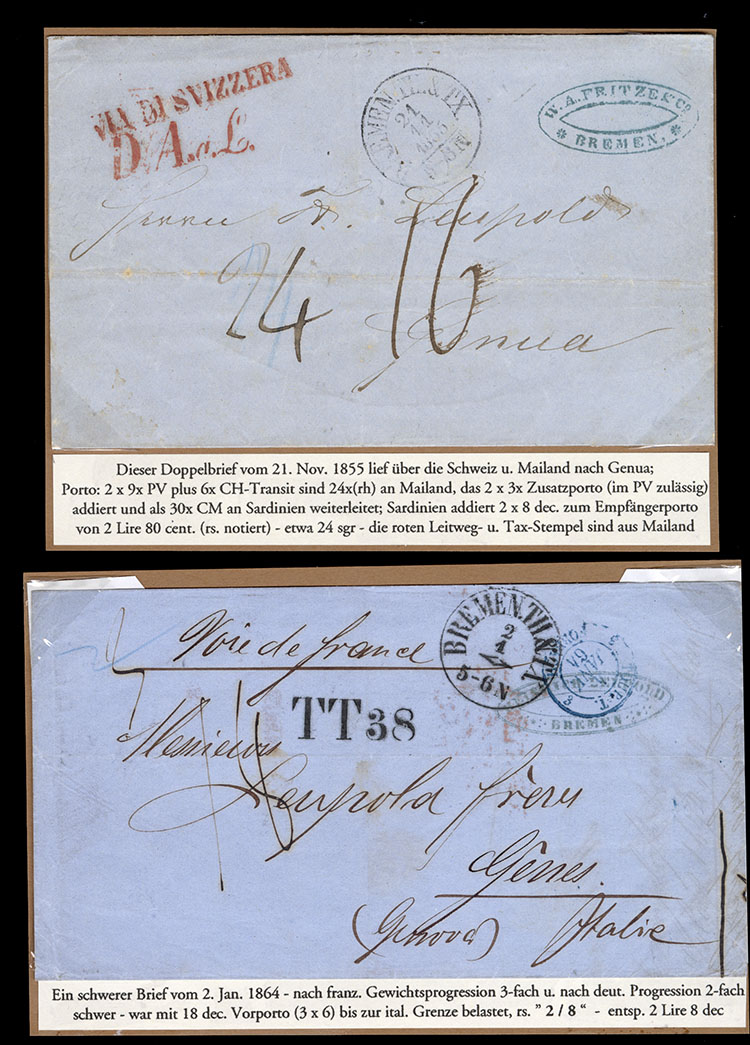 VIA DI SVIZZERA
D.A.a.L.
BREMEN.TH.&TX.
21
11
1855
W. A. FRITZE & Co.
* BREMEN. *
Herrn F. Leupold
24 16
Genua
Dieser Doppelbrief vom 21. Nov. 1855 lief über die Schweiz u. Mailand nach Genua;
Porto: 2 x 9x PV plus 6x CH-Transit sind 24x(rh) an Mailand, das 2 x 3x Zusatzporto (im PV zulässig)
addiert und als 30x CM an Sardinien weiterleitet; Sardinien addiert 2 x 8 dec. zum Empfängerporto
von 2 Lire 80 cent. (rs. notiert) - etwa 24 sgr - die roten Leitweg- u. Tax-Stempel sind aus Mailand
BREMEN.TH.&TX
2
1
5-6N
Voie de france
TT38
BREMEN
Messieurs
Leupold frères
Gênes
(Genova) Italie
Ein schwerer Brief vom 2. Jan. 1864 - nach franz. Gewichtsprogression 3-fach u. nach deut. Progression 2-fach
schwer - war mit 18 dec. Vorporto (3 x 6) bis zur ital. Grenze belastet, rs. " 2 / 8 " - entsp. 2 Lire 8 dec